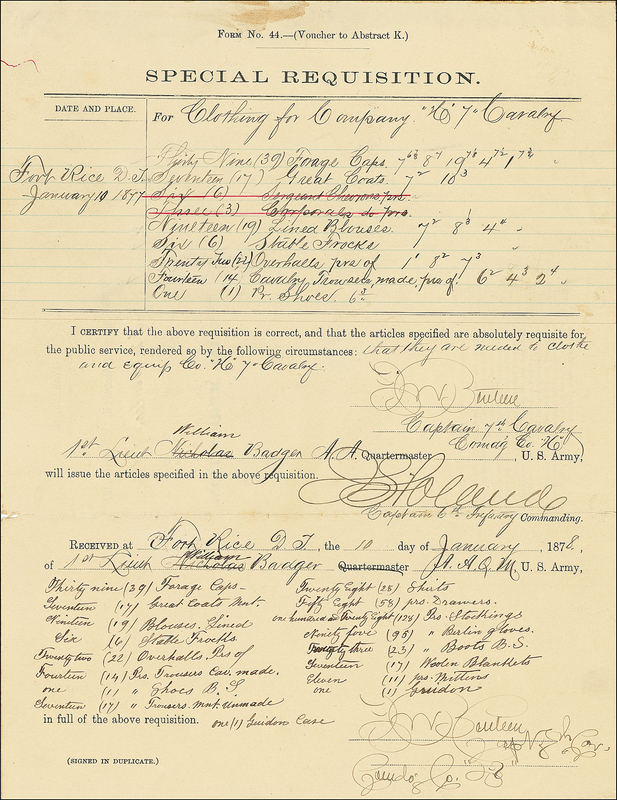 FORM NO. 44.—(Voucher to Abstract K.)
SPECIAL REQUISITION.
DATE AND PLACE.
For Clothing for Company "H" 7" Cavalry
Fort Rice D.T.
January 10 1877
Thirty Nine (39) Forage Caps.
Seventeen (17) Great Coats.
Six (6) Sergeant Chevrons prs.
Three (3) Corporals do prs.
Nineteen (19) Lined Blouses.
Six (6) Stable Frocks
Twenty Two (22) Overhalls prs of
Fourteen (14) Cavalry Trousers, made, prs of.
One (1) Pr. Shoes.
I CERTIFY that the above requisition is correct, and that the articles specified are absolutely requisite for
the public service, rendered so by the following circumstances: that they are needed to clothe
and equip Co. "H" 7" Cavalry.
F W Benteen
Captain 7th Cavalry
Comdg Co. "H"
William
1st Lieut Nicholas Badger A. A. Quartermaster, U. S. Army,
will issue the articles specified in the above requisition.
Captain 6th Infantry Commanding.
RECEIVED at Fort Rice D. T., the 10 day of January, 1878,
William
of 1st Lieut Nicholas Badger Quartermaster A. A. Q. M. U. S. Army,
Thirty nine (39) Forage Caps
Seventeen (17) Great Coats Mnt.
Nineteen (19) Blouses. Lined
Six (6) Stable Frocks
Twenty two (22) Overhalls. Prs of
Fourteen (14) Prs. Trousers Cav. made.
one (1) " Shoes B. S.
Seventeen (17) " Trousers. Mnt. Unmade
Twenty Eight (28) Shirts
Fifty Eight (58) prs. Drawers.
one hundred & Twenty Eight (128) Prs. Stockings
Ninety five (95) " Berlin gloves.
Twenty three (23) " Boots B. S.
Seventeen (17) Woolen Blankets
Eleven (11) prs. Mittens
one (1) Guidon
in full of the above requisition. one (1) Guidon Case
F W Benteen
Capt 7th Cav.
Comdg Co. "H"
(SIGNED IN DUPLICATE.)